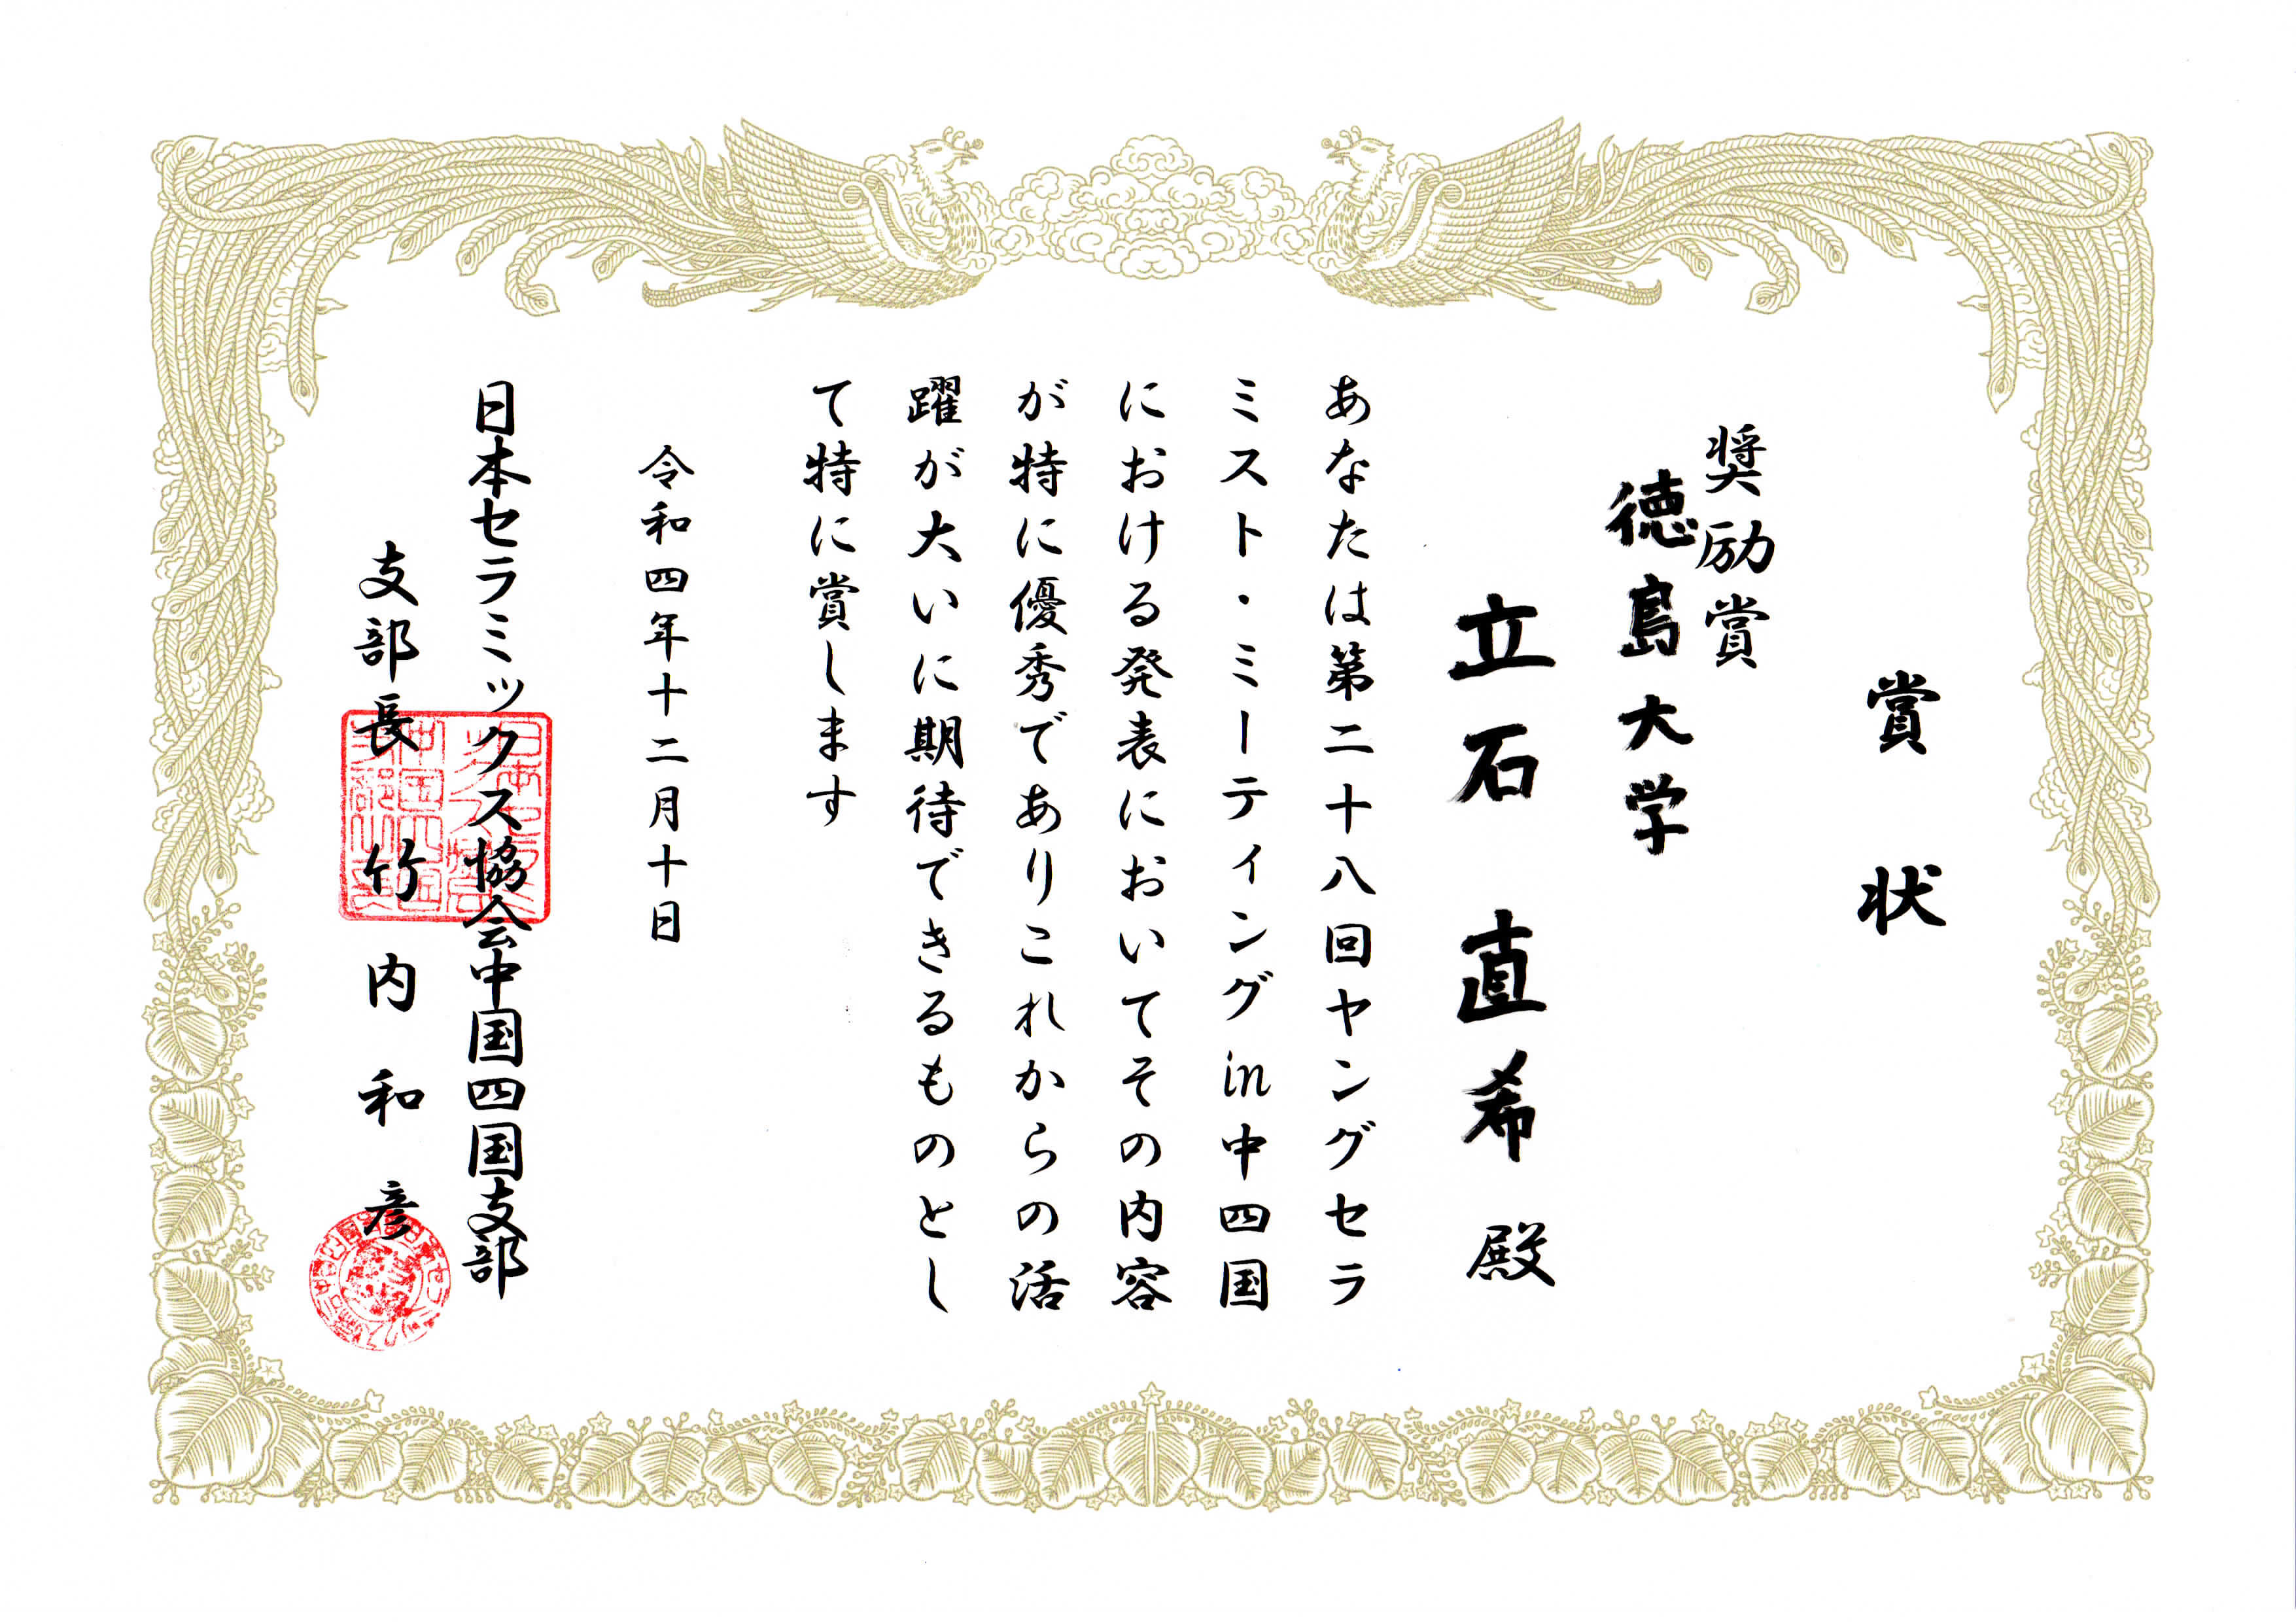 賞状
奨励賞
徳島大学
立石 直希 殿
あなたは第二十八回ヤングセラ
ミスト・ミーティングin中四国
における発表においてその内容
が特に優秀でありこれからの活
躍が大いに期待できるものとし
て特に賞します
令和四年十二月十日
日本セラミックス協会中国四国支部
支部長 竹内和彦